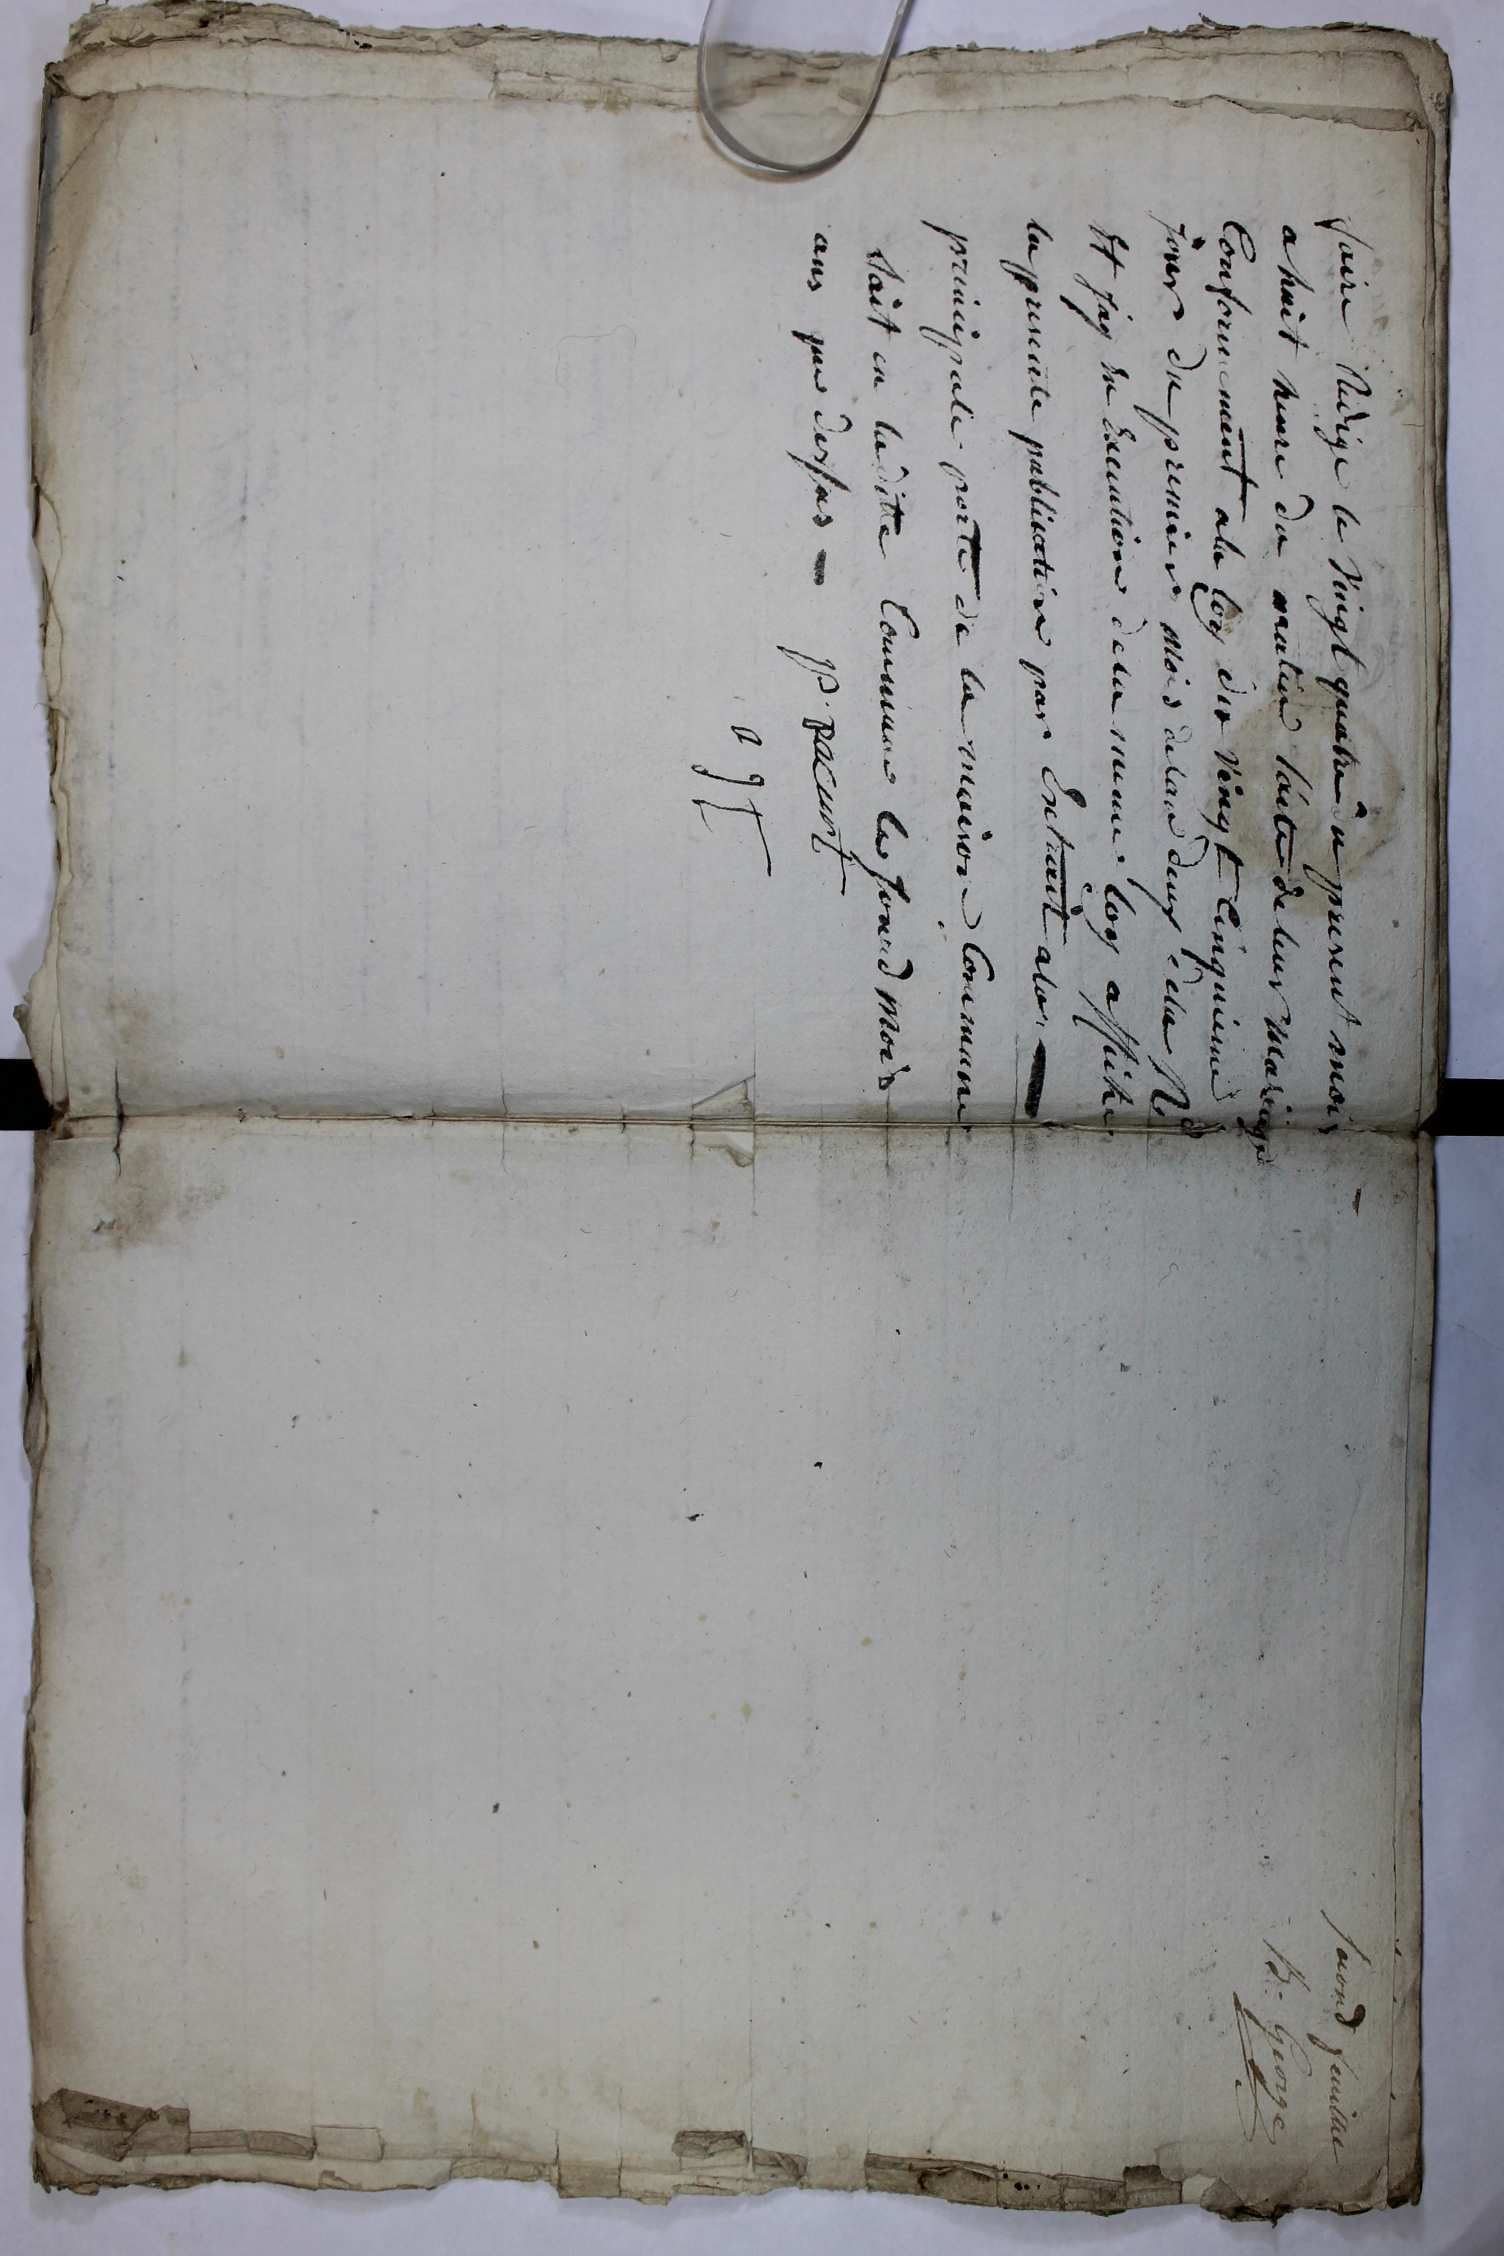 faire Rédige le vingt quatre du present mois
a huit heure du matin l'acte de leur mariage
Conformement ala loy du vingt cinquieme
jour du premier mois delan deux dela R
Et jay en Execution dela meme loy affiche
la presente publication par Extrait ala
principale porte de la maison Commune
fait en laditte Commune les jour et mois
ans que dessus P. pacurt
agt
second feuillet
B. George